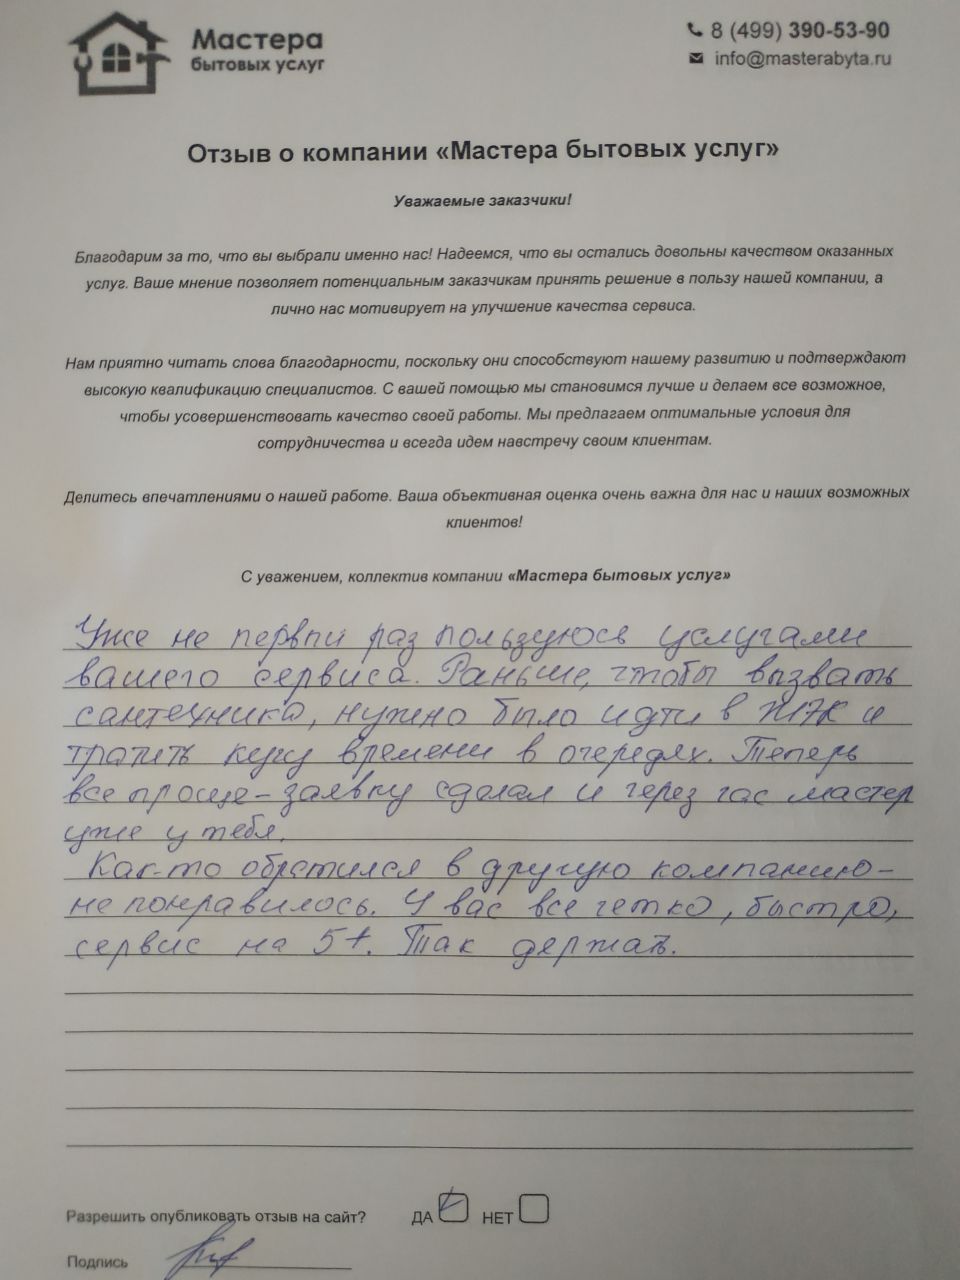 Мастера
бытовых услуг
8 (499) 390-53-90
info@masterabyta.ru
Отзыв о компании «Мастера бытовых услуг»
Уважаемые заказчики!
Благодарим за то, что вы выбрали именно нас! Надеемся, что вы остались довольны качеством оказанных
услуг. Ваше мнение позволяет потенциальным заказчикам принять решение в пользу нашей компании, а
лично нас мотивирует на улучшение качества сервиса.
Нам приятно читать слова благодарности, поскольку они способствуют нашему развитию и подтверждают
высокую квалификацию специалистов. С вашей помощью мы становимся лучше и делаем все возможное,
чтобы усовершенствовать качество своей работы. Мы предлагаем оптимальные условия для
сотрудничества и всегда идем навстречу своим клиентам.
Делитесь впечатлениями о нашей работе. Ваша объективная оценка очень важна для нас и наших возможных
клиентов!
С уважением, коллектив компании «Мастера бытовых услуг»
Уже не первый раз пользуюсь услугами
вашего сервиса. Раньше, чтобы вызвать
сантехника, нужно было идти в ЖЭК и
тратить кучу времени в очередях. Теперь
все проще – заявку сделал и через час мастер
уже у тебя.
Как-то обратился в другую компанию –
не понравилось. У вас все четко, быстро,
сервис на 5+. Так держать.
Разрешить опубликовать отзыв на сайт? ДА НЕТ
Подпись